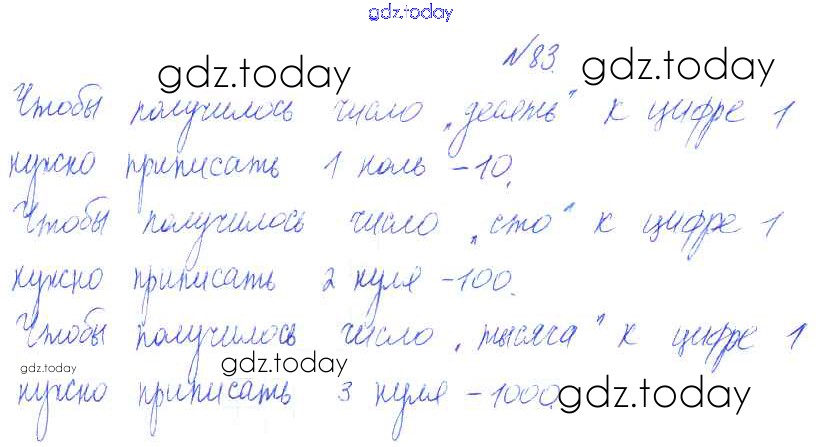 gdz.today
№83.
gdz.today gdz.today
Чтобы получилось число „десять" к цифре 1
нужно приписать 1 ноль -10.
Чтобы получилось число „сто" к цифре 1
нужно приписать 2 нуля -100.
Чтобы получилось число „тысяча" к цифре 1
gdz.today gdz.today gdz.today
нужно приписать 3 нуля -1000.